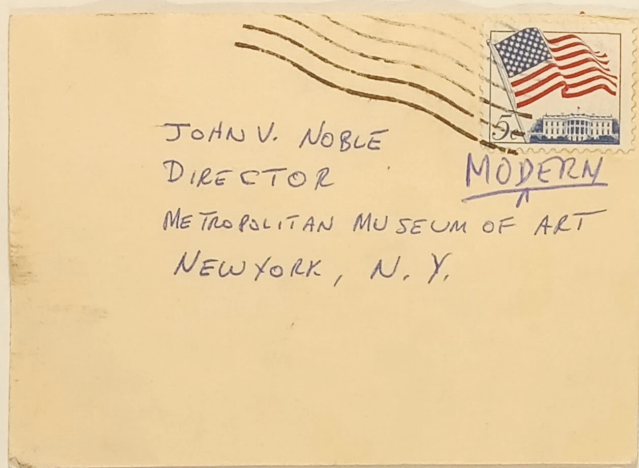 5c
JOHN V. NOBLE
DIRECTOR
MODERN
METROPOLITAN MUSEUM OF ART
NEW YORK, N.Y.